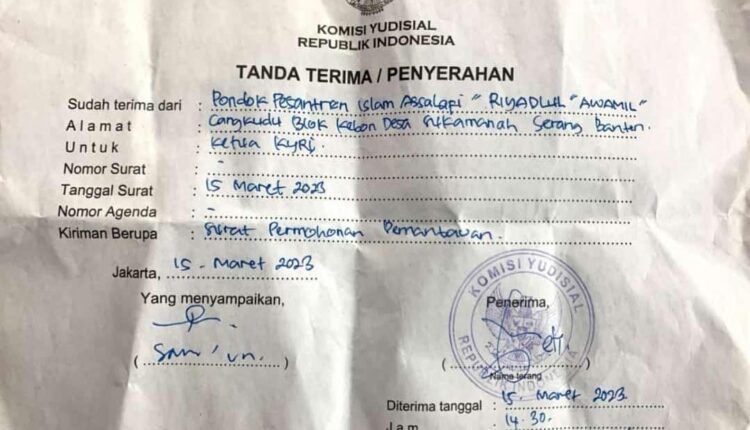 KOMISI YUDISIAL
REPUBLIK INDONESIA
TANDA TERIMA / PENYERAHAN
Sudah terima dari : Pondok Pesantren Islam Assalapi "RIYADLUL "AWAMIL"
Alamat : Cangkudu Blok Kebon Desa Sukamanah Serang Banten.
Untuk : Ketua KYRI.
Nomor Surat : -
Tanggal Surat : 15 Maret 2023
Nomor Agenda : -
Kiriman Berupa : Surat Permohonan Pemantauan.
Jakarta, 15 - Maret 2023
Yang menyampaikan, Penerima,
KOMISI YUDISIAL
REPUBLIK INDONESIA
(San'un.) ( )
Nama terang
Diterima tanggal : 15. Maret 2023
Jam : 14.30.